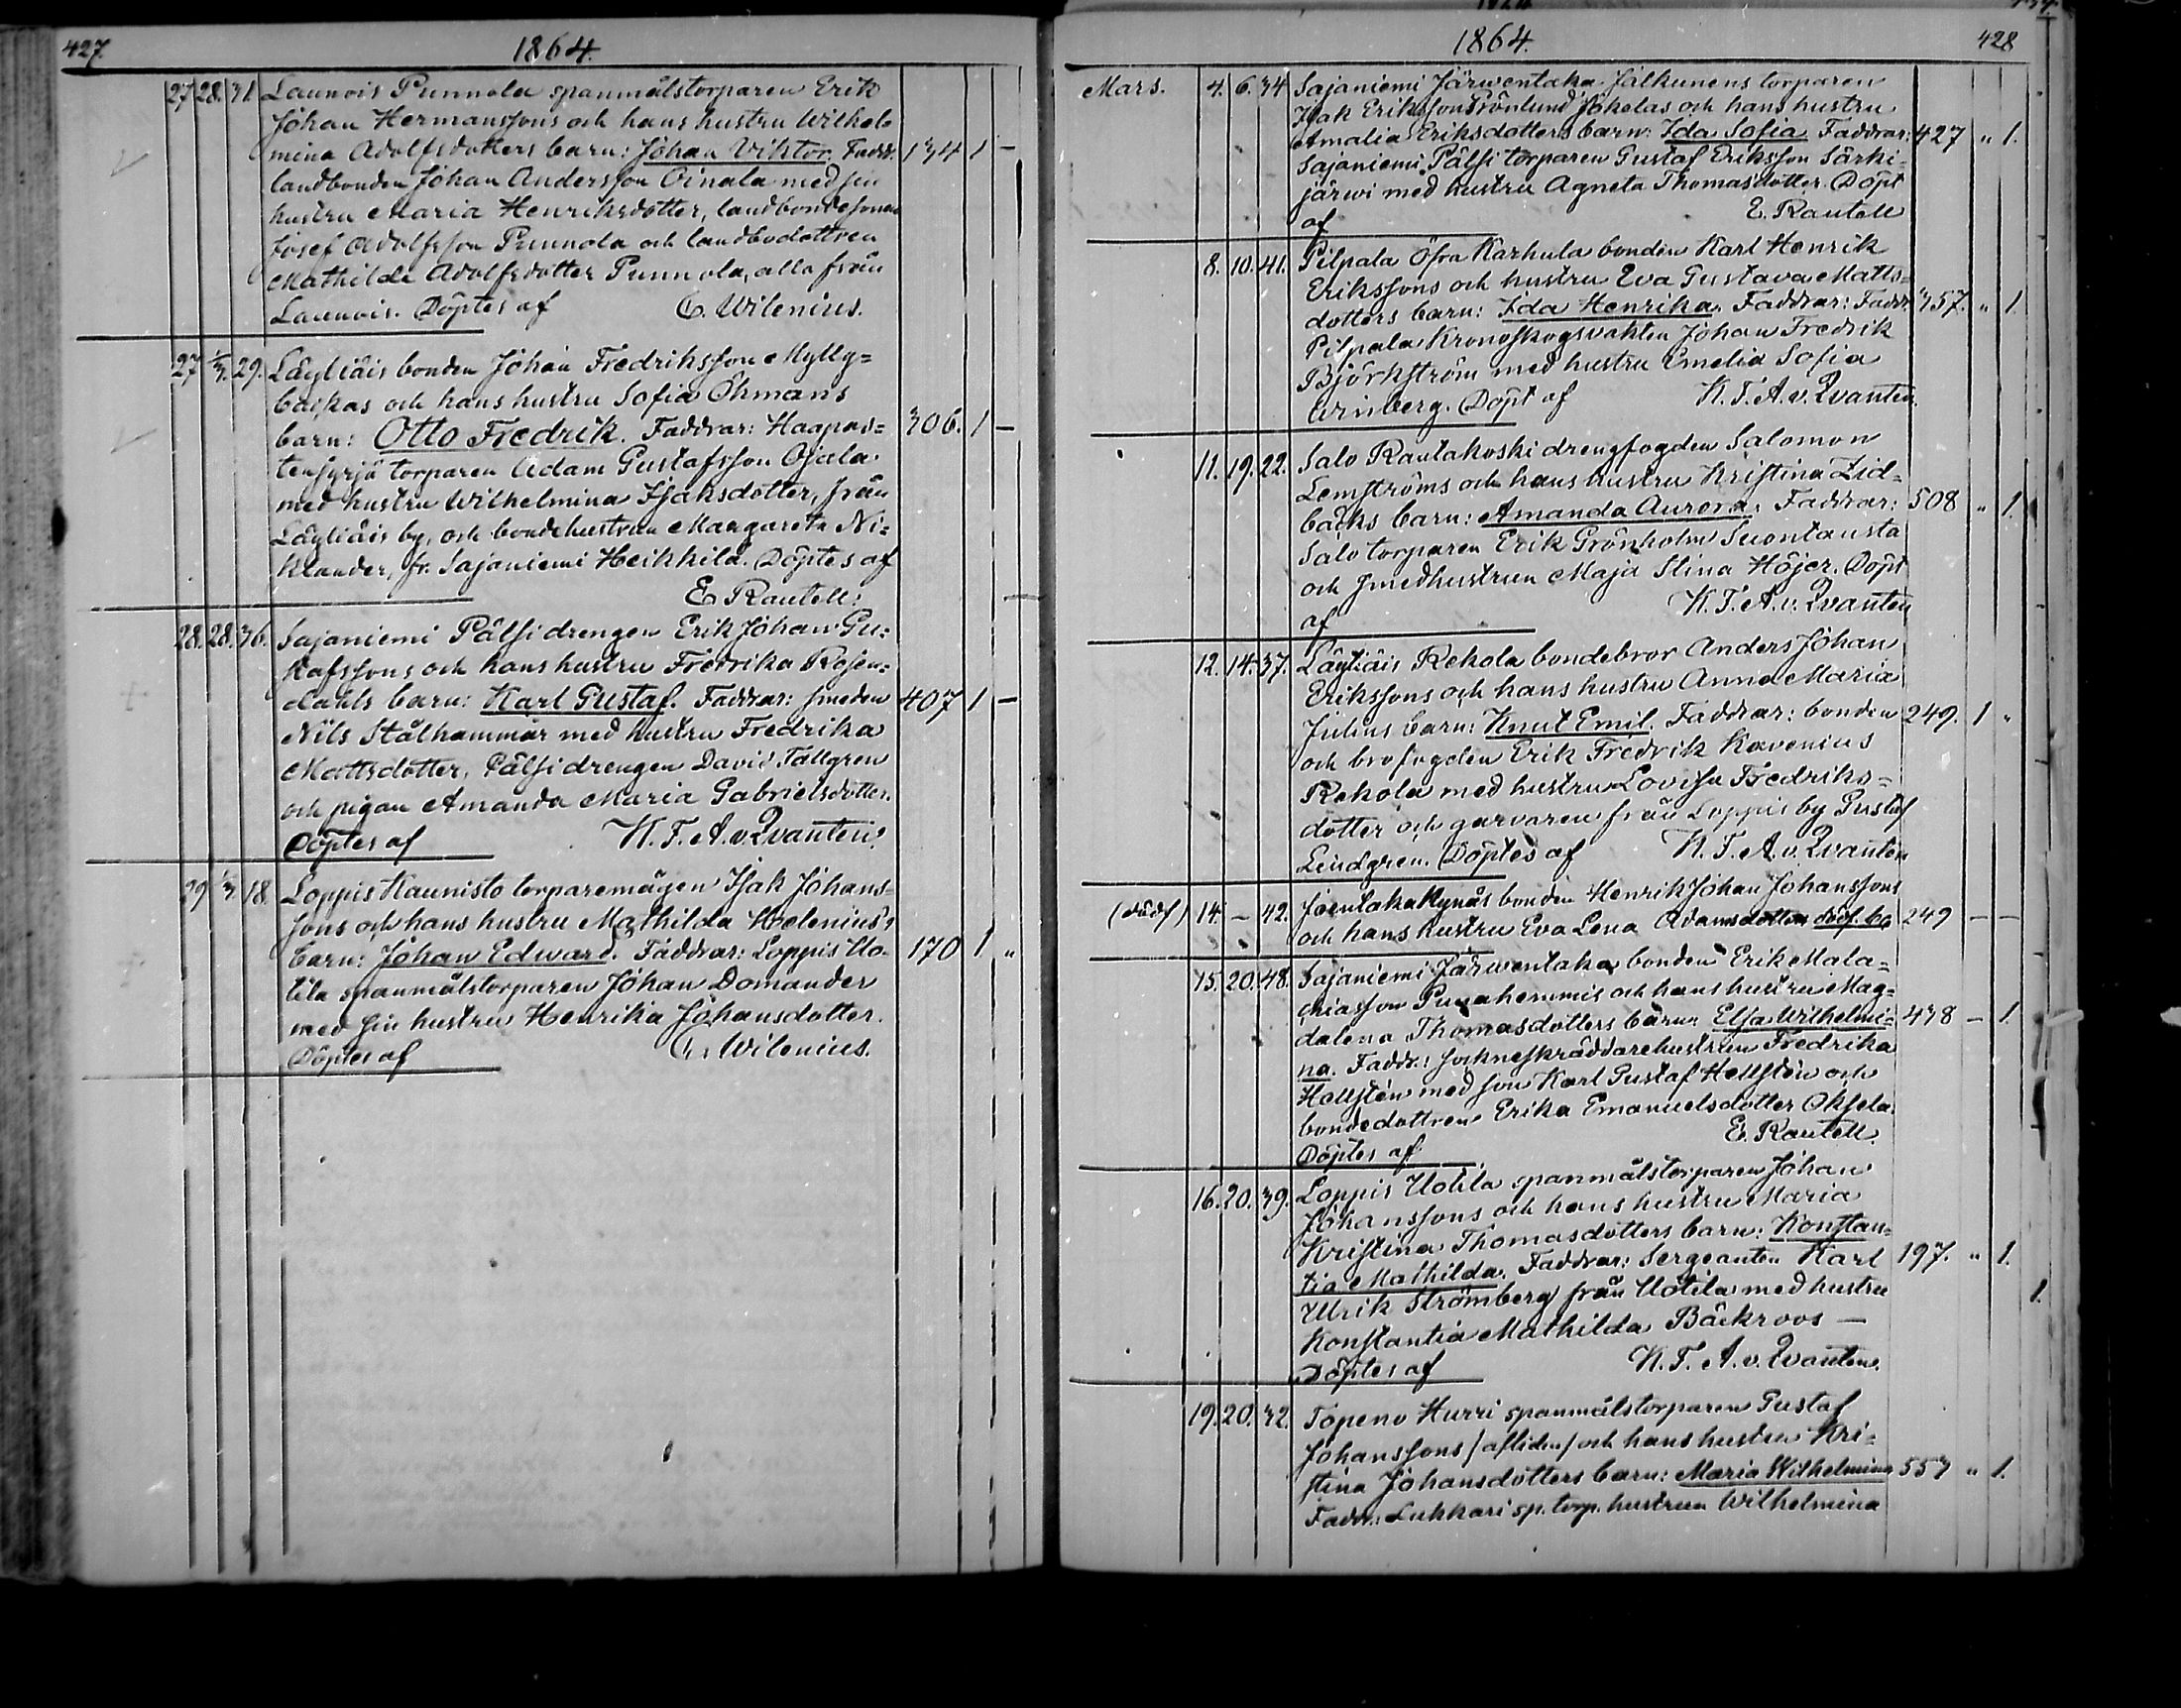 427. 1864.
27 28. 31. Launois Punnola spanmålstorparen Erik
Johan Hermanssons och hans hustru Wilhel-
mina Adolfsdotters barn: Johan Viktor. Fadd. 134 1 –
landbonden Johan Andersson Oinala med sin
hustru Maria Henriksdotter, landbondesonen
Josef Adolfsson Punnola och landbodottren
Mathilda Adolfsdotter Punnola, alla från
Launois. Döptes af C. Wilenius.
27 1/3. 29. Läyliäis bonden Johan Fredriksson Mylly=
backas och hans hustru Sofia Öhmans
barn: Otto Fredrik. Faddrar: Haapas= 306. 1 –
tensyrjä torparen Adam Gustafsson Ojala
med hustru Wilhelmina Isaksdotter, från
Läyliäis by, och bondehustrun Margareta Ni=
klander, fr. Sajaniemi Heikkilä. Döptes af
E. Rautell.
28. 28. 36. Sajaniemi Pälsi drengen Erik Johan Gu=
stafssons och hans hustru Fredrika Rosen=
dahls barn: Karl Gustaf. Faddrar: smeden 407 1 –
Nils Stålhammar med hustru Fredrika
Mattsdotter, Pälsi drengen David Tallgren
och pigan Amanda Maria Gabrielsdotter.
Döptes af K. F. A. v. Qvanten.
29 1/3 18. Loppis Kaunisto torparemågen Isak Johans=
sons och hans hustru Mathilda Helenius's
barn: Johan Edward. Faddrar: Loppis Uo- 170 1 "
tila spanmålstorparen Johan Domander
med sin hustru Henrika Johansdotter.
Döptes af C. Wilenius.
1864. 428
Mars. 4. 6. 34 Sajaniemi Järwentaka Jälkunens torparen
Isak Eriksson Grönlund Jokelas och hans hustru
Amalia Eriksdotters barn: Ida Sofia. Faddrar: 427 " 1.
Sajaniemi Pälsi torparen Gustaf Eriksson Särki-
järwi med hustru Agneta Thomasdotter. Döpt
af E. Rautell
8. 10. 41. Pilpala Öfra Karhula bonden Karl Henrik
Erikssons och hustru Eva Gustava Matts=
dotters barn: Ida Henrika. Faddrar: Fadd. 357. " 1
Pilpala Kronoskogsvakten Johan Fredrik
Björkström med hustru Emelia Sofia
Winberg. Döpt af K. F. A. v. Qvanten.
11. 19. 22. Salo Rautakoski drengfogden Salomon
Lemströms och hans hustru Kristina Lid=
bäcks barn: Amanda Aurora. Faddrar: 508 " 1.
Salo torparen Erik Grönholm Suontausta
och smedhustrun Maja Stina Höjer. Döpt
af K. F. A. v. Qvanten
12. 14. 37. Läyliäis Rekola bondebror Anders Johan
Erikssons och hans hustru Anna Maria
Julius barn: Knut Emil. Faddrar: bonden 249. 1 "
och brofogden Erik Fredrik Kavenius
Rekola med hustru Lovisa Fredriks=
dotter och garvaren från Loppis by Gustaf
Lindgren. Döptes af K. F. A. v. Qvanten
(dödf) 14. – 42. Joentaka Kynäs bonden Henrik Johan Johanssons
och hans hustru Eva Lena Adamsdotters dödf. ba 249 – –
15. 20. 48. Sajaniemi Järwentaka bonden Erik Mala=
chiasson Punahemmis och hans hustru Mag=
dalena Thomasdotters barn Elsa Wilhelmi= 438 – 1.
na. Faddr.: sockneskräddarehustrun Fredrika
Hellstén med son Karl Gustaf Hellstén och
bondedottren Erika Emanuelsdotter Oksela.
Döptes af E. Rautell.
16. 20. 39. Loppis Uotila spanmålstorparen Johan
Johanssons och hans hustru Maria
Kristina Thomasdotters barn: Konstan=
tia Mathilda. Faddrar: Sergeanten Karl 197. " 1.
Ulrik Strömberg från Uotila med hustru
Konstantia Mathilda Bäckroos – 1.
Döptes af K. F. A. v. Qvanten.
19. 20. 32. Topeno Hurri spanmålstorparen Gustaf
Johanssons /afliden/ och hans hustru Kri=
stina Johansdotters barn: Maria Wilhelmina 557 " 1.
Faddr.: Lukkari sp. torp. hustrun Wilhelmina